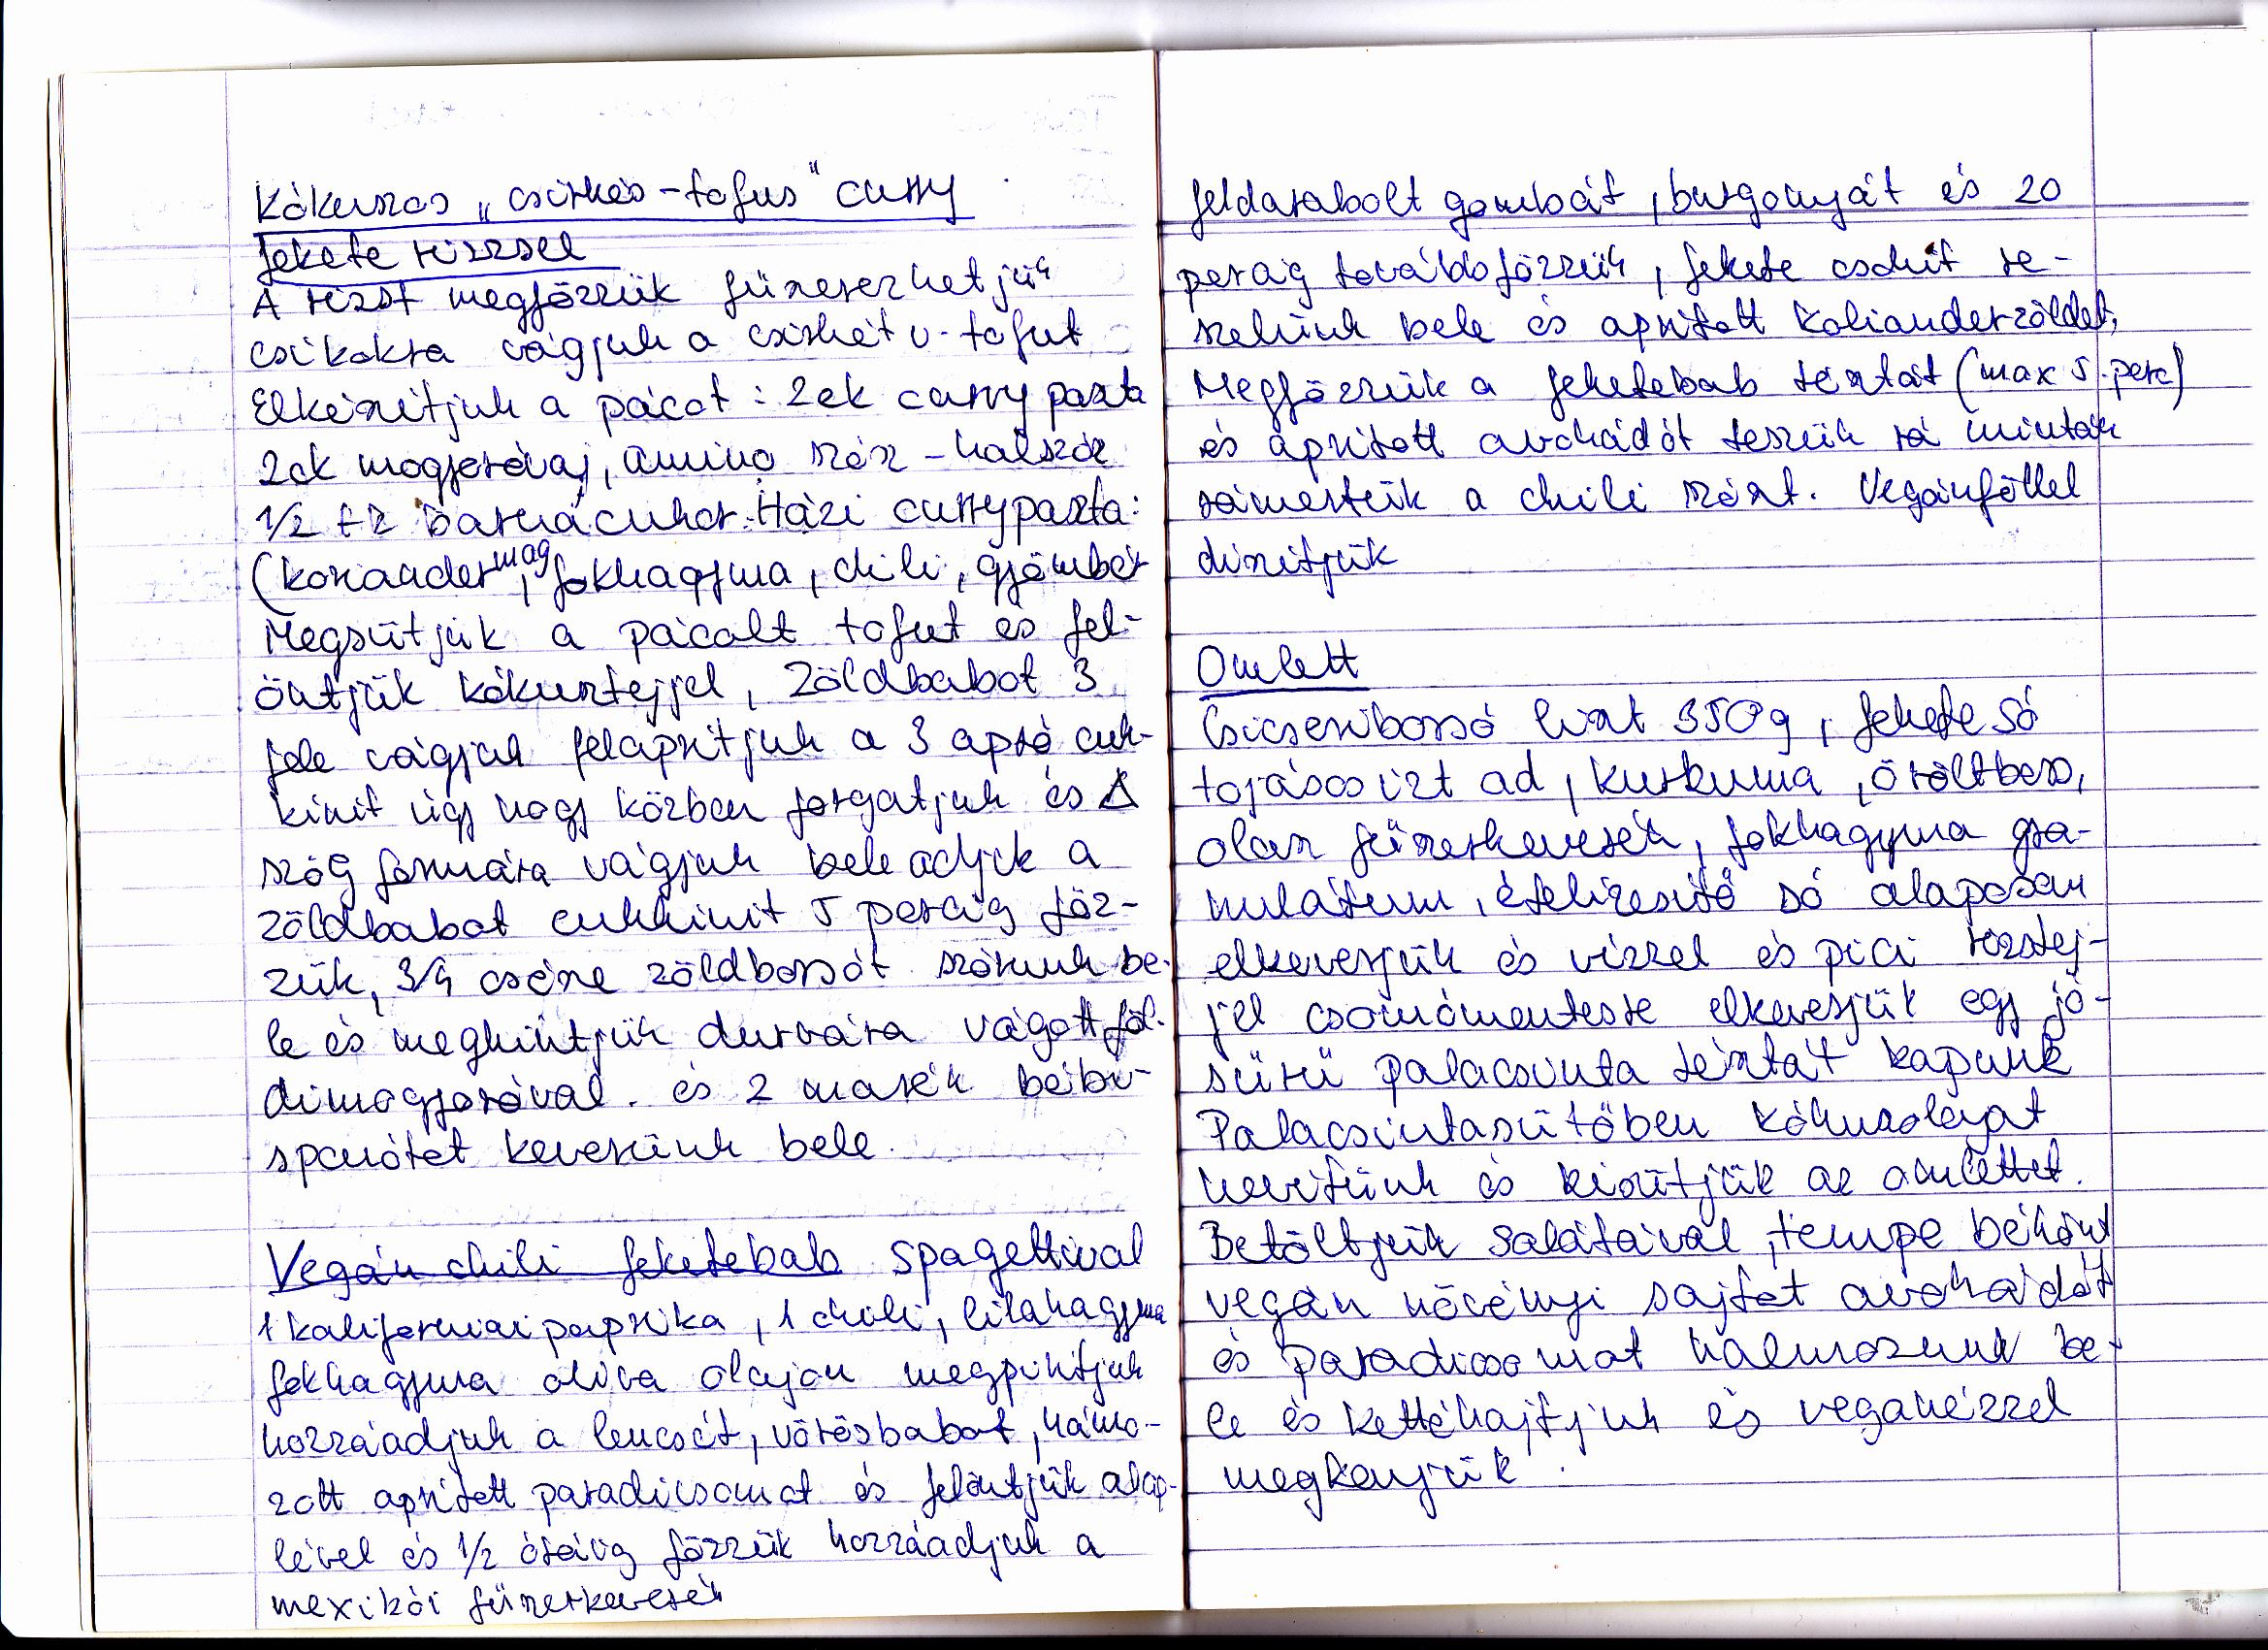 Kókuszos „csirkés-tofus" curry
fekete rizzsel
A rizst megfőzzük fűszerezhetjük
csíkokra vágjuk a csirkét v. tofut
Elkészítjük a pácot: 2ek curry paszta
2ek mogyoróvaj, amino szósz - halszósz
1/2 tk barnacukor. Házi currypaszta:
(koriandermag, fokhagyma, chili, gyömbér
Megsütjük a pácolt tofut és fel-
öntjük kókusztejjel, Zöldbabot 3
fele vágjuk felaprítjuk a 3 apró cuk-
kinit úgy hogy közben forgatjuk és Δ
szög formára vágjuk bele adjuk a
zöldbabot cukkinit 5 percig főz-
zük, 3/4 csésze zöldborsót szórunk be-
le és meghintjük durvára vágott föl-
dimogyoróval. és 2 marék bébi-
spenótot keverünk bele.
Vegán chili feketebab spagettivel
1 kaliforniai paprika, 1 chili, lilahagyma
fokhagyma oliva olajon megpirítjuk
hozzáadjuk a lencsét, vörösbabot, hámo-
zott aprított paradicsomot és felöntjük alap-
lével és 1/2 óráig főzzük hozzáadjuk a
mexikói fűszerkeverék
feldarabolt gombát, burgonyát és 20
percig továbbfőzzük, fekete csokit re-
szelünk bele és aprított korianderzöldet,
Megfőzzük a feketebab tésztát (max 5. perc)
és aprított avokádót teszük rá miután
rámertük a chili szószt. Vegánföllel
díszítjük
Omlett
Csicseriborsó liszt 350g, fekete só
tojásos ízt ad, kurkuma, őröltbors,
olasz fűszerkeverék, fokhagyma gra-
nulátum, ételízesítő só alaposan
elkeverjük és vízzel és pici rizstej-
jel csomómentesre elkeverjük egy jó-
sűrű palacsinta tésztát kapunk
Palacsintasütőben kókuszolajat
hevítünk és kisütjük az omlettet.
Betöltjük salátával, tempe békönt
vegán növényi sajtot avokádót
és paradicsomot halmozunk be-
le és kettéhajtjuk és vegakézzel
megkenjük.